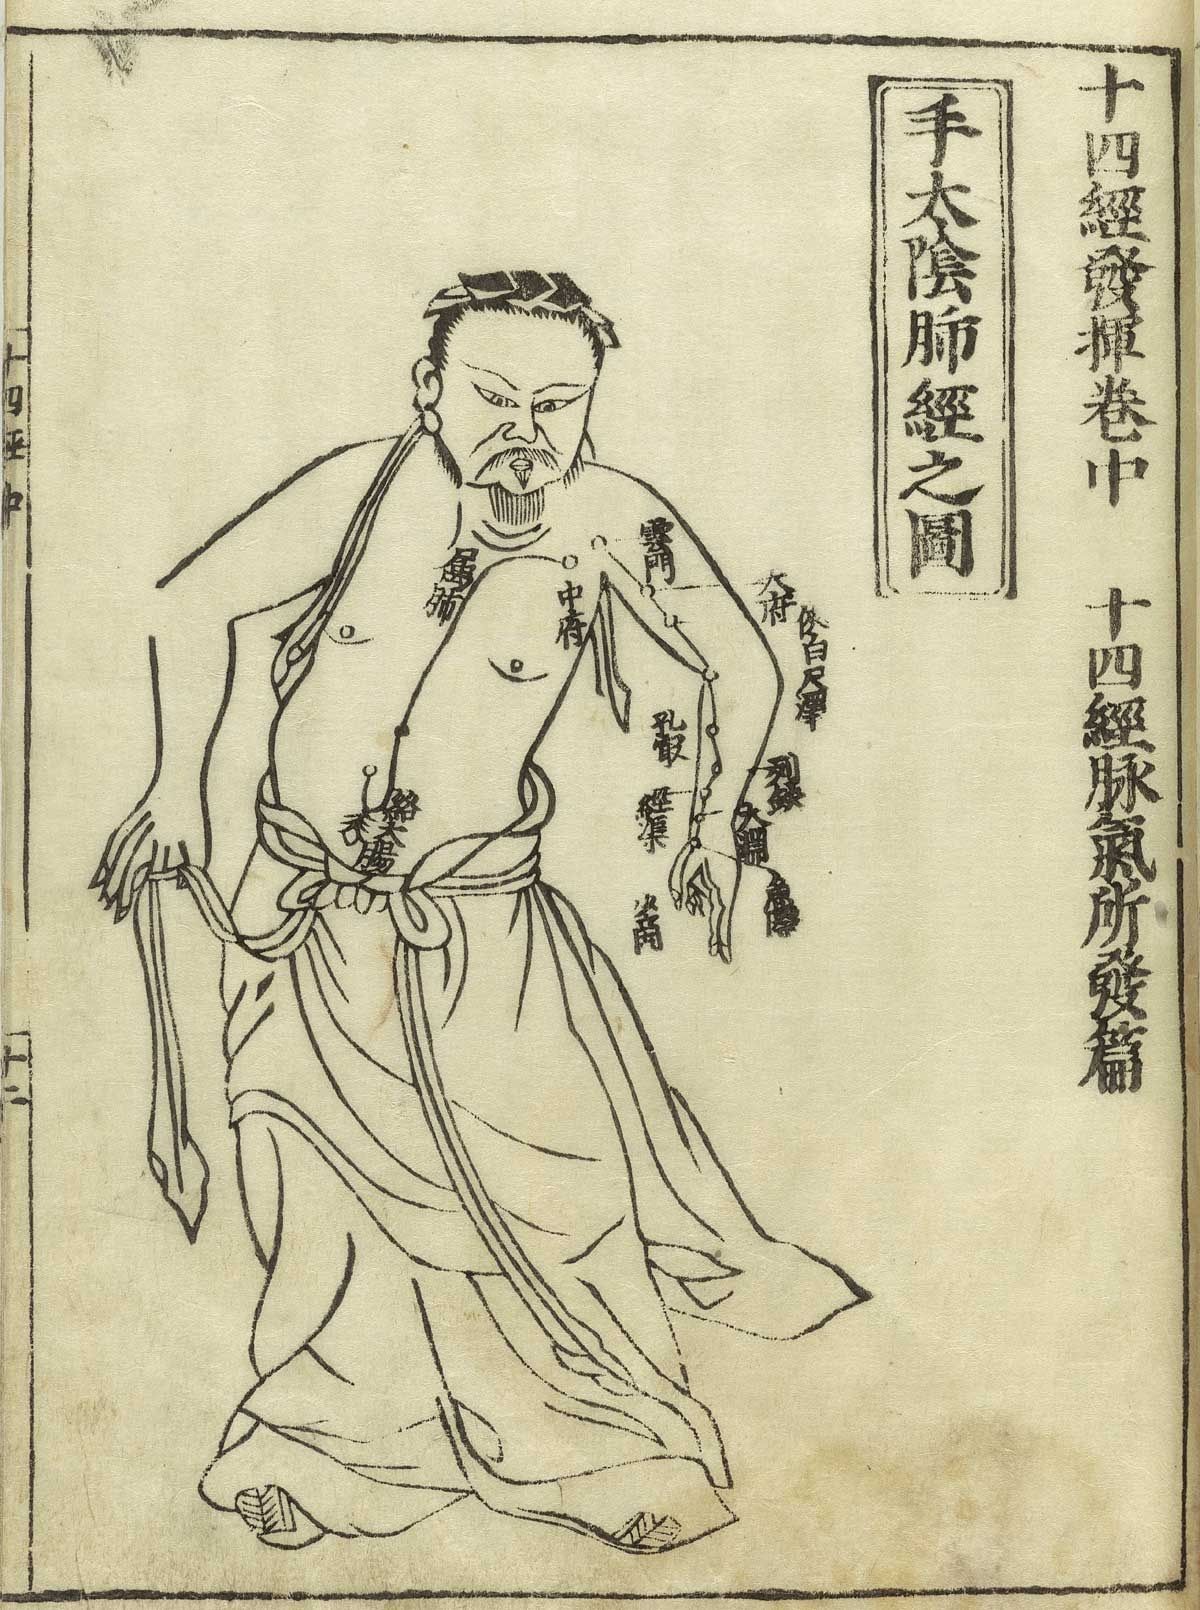 十四經發揮卷中
十四經脉氣所發篇
手太陰肺經之圖
雲門
中府
屬肺
天府
俠白
尺澤
孔最
列缺
經渠
大淵
魚際
少商
絡大腸
十四經中
十二